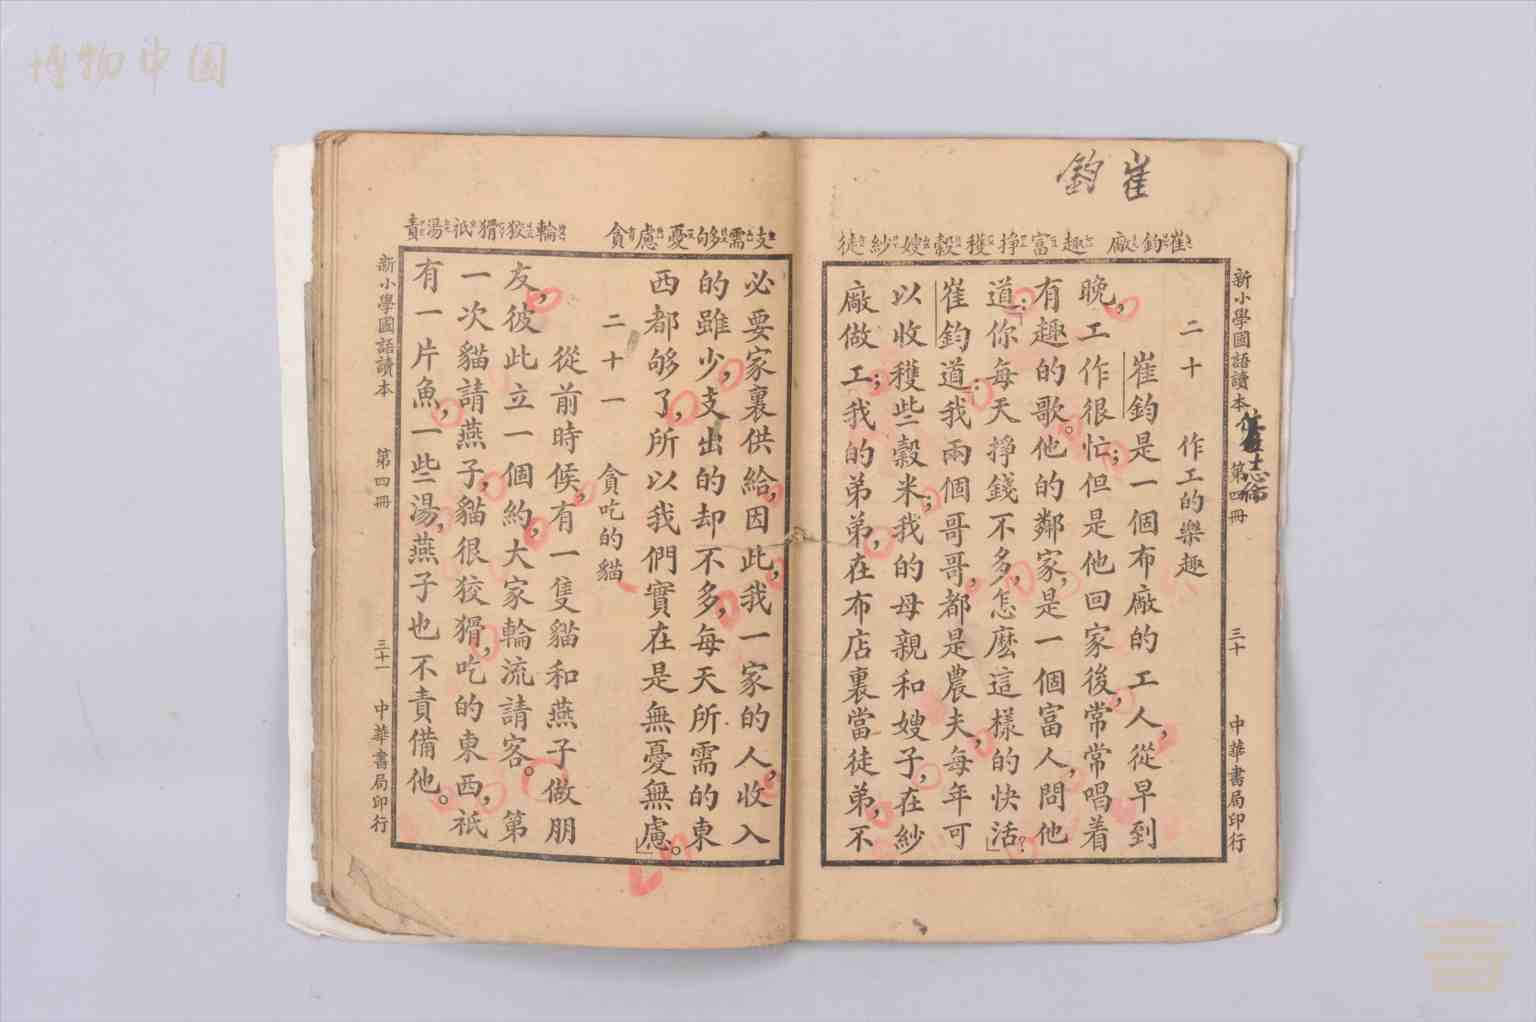 博物中国
崔鈞
崔鈞廠 趣富掙穫穀嫂紗徒
新小學國語讀本 第四冊 三十 中華書局印行
二十 作工的樂趣
崔鈞是一個布廠的工人，從早到
晚，工作很忙；但是他回家後，常常唱着
有趣的歌。他的鄰家，是一個富人，問他
道：「你每天掙錢不多，怎麼這樣的快活？」
崔鈞道：「我兩個哥哥，都是農夫，每年可
以收穫些穀米；我的母親和嫂子，在紗
廠做工；我的弟弟，在布店裏當徒弟，不
支需够憂慮貪 輪狡猾祇湯責
必要家裏供給，因此，我一家的人，收入
的雖少，支出的却不多，每天所需的東
西都够了，所以我們實在是無憂無慮。」
二十一 貪吃的貓
從前時候，有一隻貓和燕子做朋
友，彼此立一個約，大家輪流請客。第
一次貓請燕子，貓很狡猾，吃的東西，祇
有一片魚，一些湯，燕子也不責備他。
新小學國語讀本 第四冊 三十一 中華書局印行